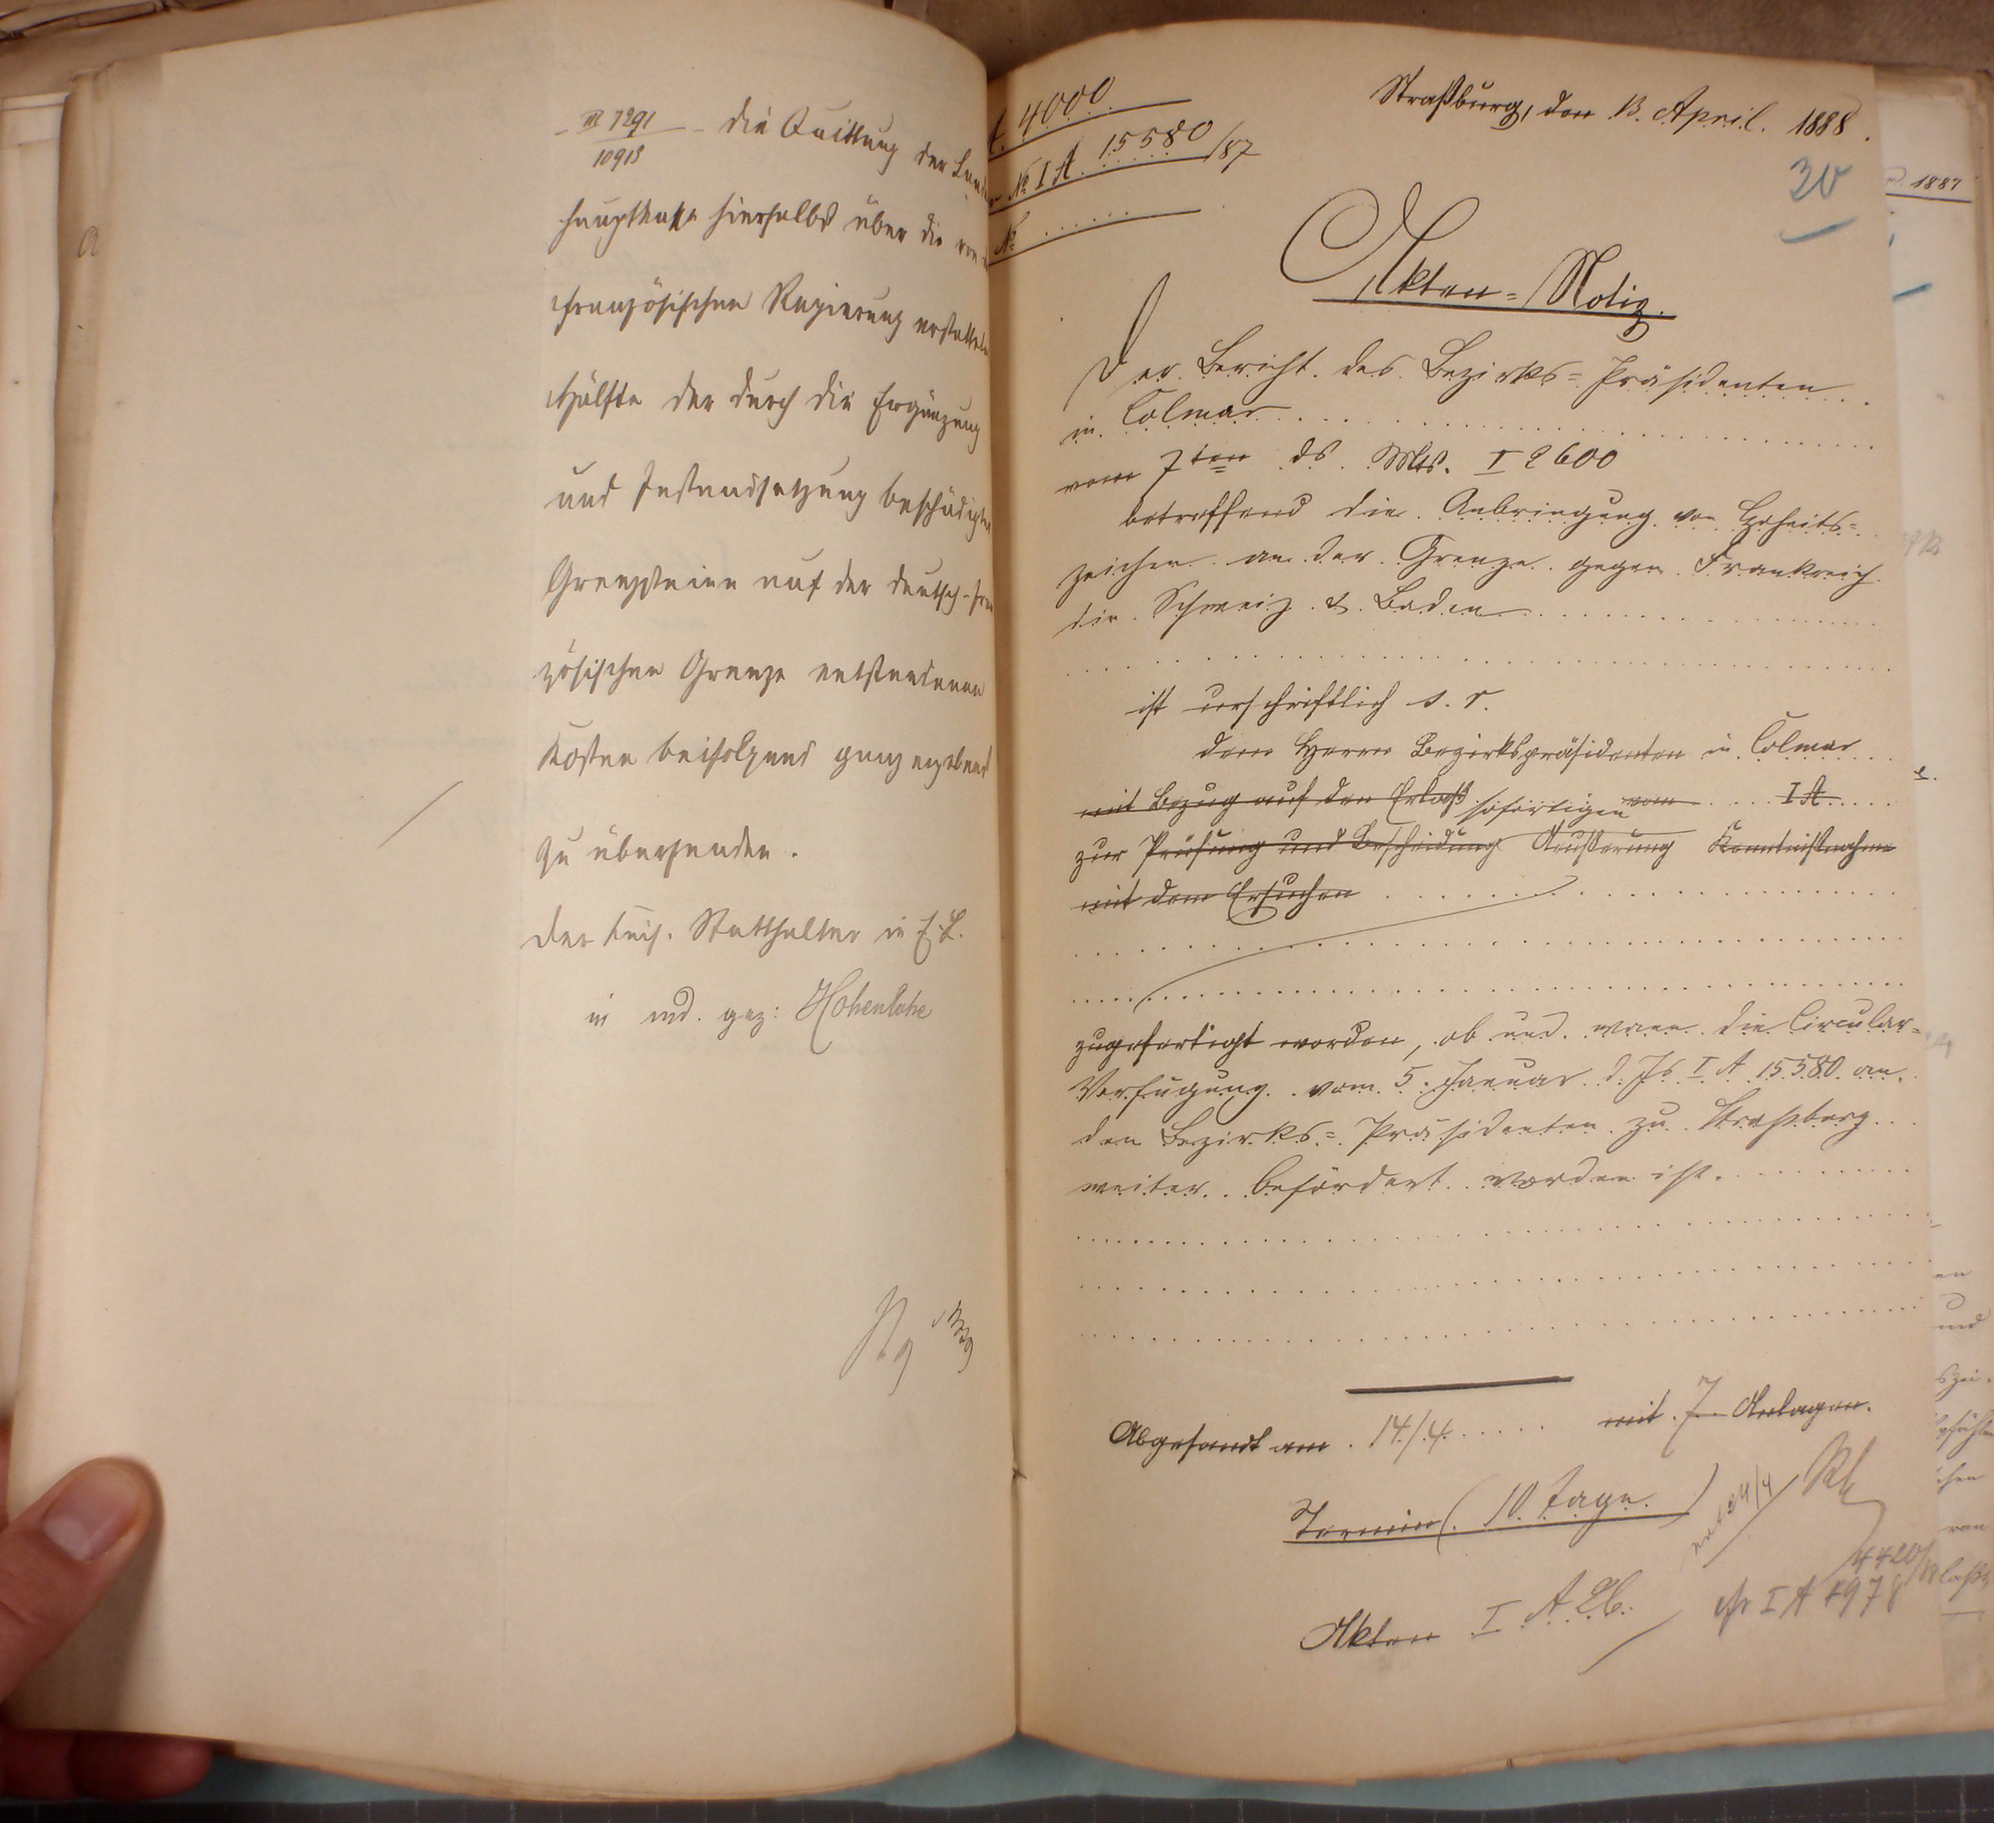 III 7291
10918
die Quittung der Lan
hauptkasse hierselbst über die von
französischen Regierung erstattete
Hälfte der durch die Ergänzung
und Instandsetzung beschädigter
Grenzsteine auf der deutsch-fran
zösischen Grenze entstandenen
Kosten beifolgend ganz ergebenst
zu übersenden.
Der Kais. Statthalter in E. L.
in gez: Hohenlohe
A 4000
No I A. 15580/87
No
Straßburg, den 13. April. 1888.
30
Akten=Notiz.
Der Bericht des Bezirks=Präsidenten
in Colmar
vom 7ten ds. Mts. I 2600
betreffend die Anbringung von Hoheits=
zeichen an der Grenze gegen Frankreich
die Schweiz & Baden
ist urschriftlich s. r.
dem Herrn Bezirkspräsidenten in Colmar
mit Bezug auf den Erlaß vom I A
sofortigen
zur Prüfung und Bescheidung Äußerung Kenntnißnahme
mit dem Ersuchen
zugefertigt worden, ob und wann die Circular=
Verfügung vom 5. Januar d. Js I A 15580 an
den Bezirks=Präsidenten zu Straßburg
weiter befördert worden ist.
Abgesandt am 14/4. mit 7 Anlagen.
Termin (10 Tage.)
24/4
4420/88
Akten I A
I A 4978
1887